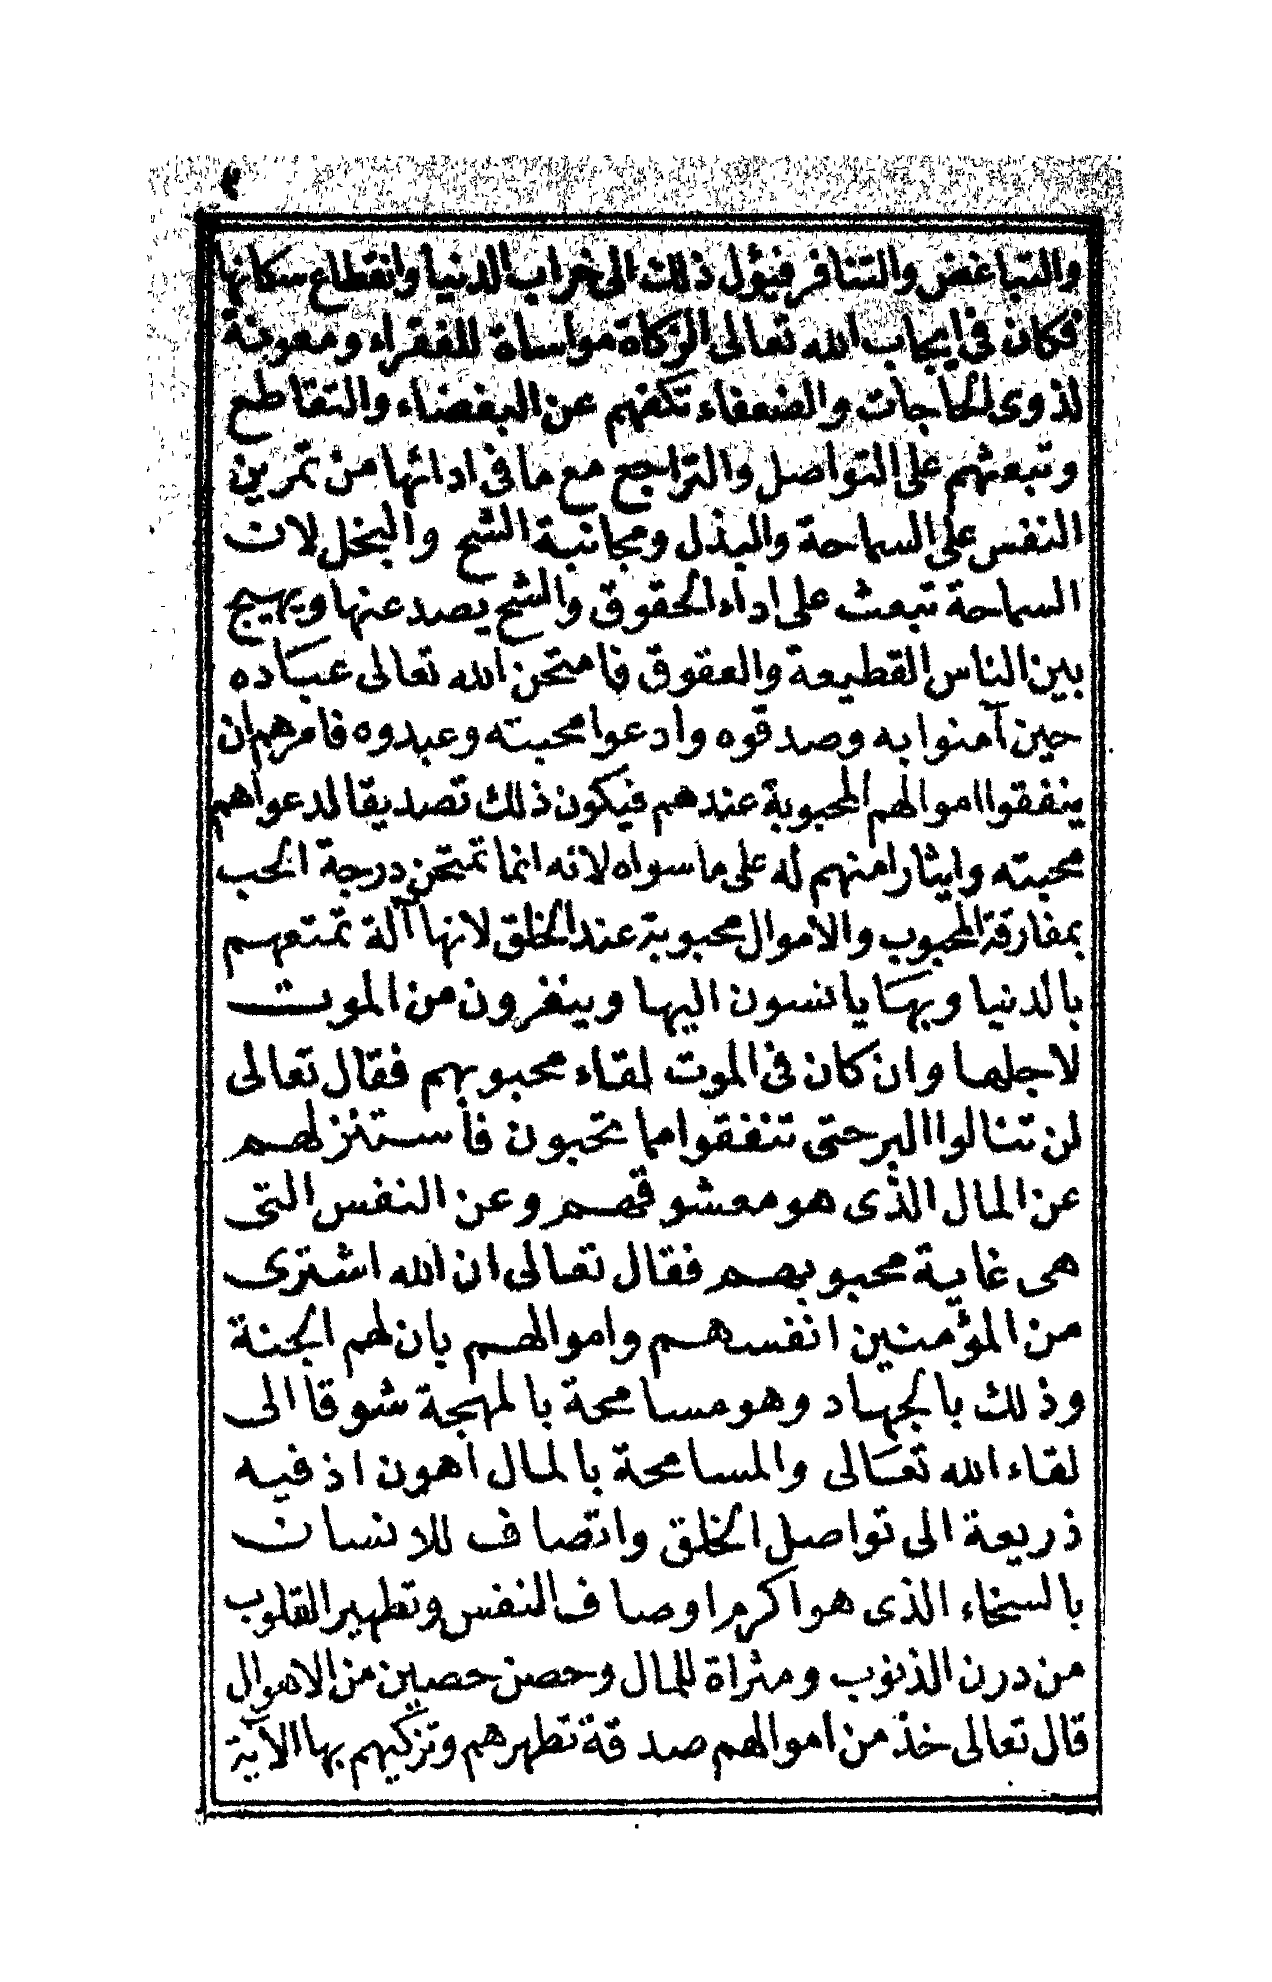 ٩
والتباغض والتنافر فيؤل ذلك الى خراب الدنيا وانقطاع سكانها
فكان فى ايجاب الله تعالى الزكاة مواساة للفقراء ومعونة
لذوى الحاجات والضعفاء تكفهم عن البغضاء والتقاطع
وتبعثهم على التواصل والتراجع مع ما فى ادائها من تمرين
النفس على السماحة والبذل ومجانبة الشح والبخل لان
السماحة تبعث على اداء الحقوق والشح يصد عنها ويهيج
بين الناس القطيعة والعقوق فامتحن الله تعالى عباده
حين آمنوا به وصدقوه وادعوا محبته وعبدوه فامرهم ان
ينفقوا اموالهم المحبوبة عندهم فيكون ذلك تصديقا لدعواهم
محبته وايثارا منهم له على ما سواه لانه انما تمتحن درجة الحب
بمفارقة المحبوب والاموال محبوبة عند الخلق لانها آلة تمتعهم
بالدنيا وبها يانسون اليها وينفرون من الموت
لاجلها وان كان فى الموت لقاء محبوبهم فقال تعالى
لن تنالوا البر حتى تنفقوا مما تحبون فاستنزلهم
عن المال الذى هو معشوقهم وعن النفس التى
هى غاية محبوبهم فقال تعالى ان الله اشترى
من المؤمنين انفسهم واموالهم بان لهم الجنة
وذلك بالجهاد وهو مسامحة بالمهجة شوقا الى
لقاء الله تعالى والمسامحة بالمال اهون اذ فيه
ذريعة الى تواصل الخلق واتصاف للانسان
بالسخاء الذى هو اكرم اوصاف النفس وتطهير القلوب
من درن الذنوب ومثراة للمال وحصن حصين من الاهوال
قال تعالى خذ من اموالهم صدقة تطهرهم وتزكيهم بها الآية